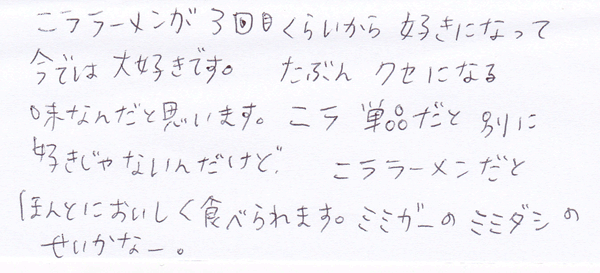 ニララーメンが3回目くらいから 好きになって
今では 大好きです。 たぶん クセになる
味なんだと思います。 ニラ 単品だと 別に
好きじゃないんだけど ニララーメンだと
ほんとにおいしく食べられます。ミミガーの ミミダシの
せいかなー。